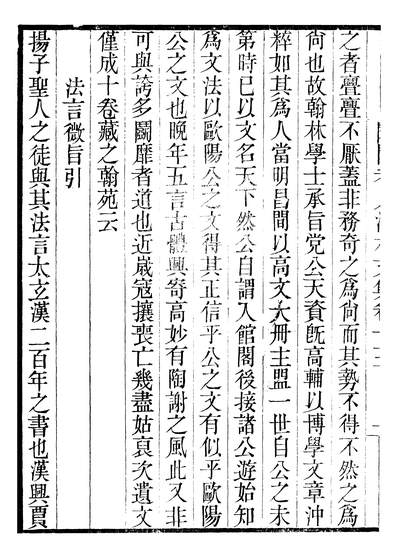 之者亹亹不厭蓋非務奇之爲尙而其勢不得不然之爲
尙也故翰林學士承旨党公天資旣高輔以博學文章沖
粹如其爲人當明昌間以高文大冊主盟一世自公之未
第時已以文名天下然公自謂入館閣後接諸公遊始知
爲文法以歐陽公之文得其正信乎公之文有似乎歐陽
公之文也晚年五言古體興寄高妙有陶謝之風此又非
可與誇多鬭靡者道也近歲寇攘喪亡幾盡姑裒次遺文
僅成十卷藏之翰苑云
法言微旨引
揚子聖人之徒與其法言太玄漢二百年之書也漢興賈